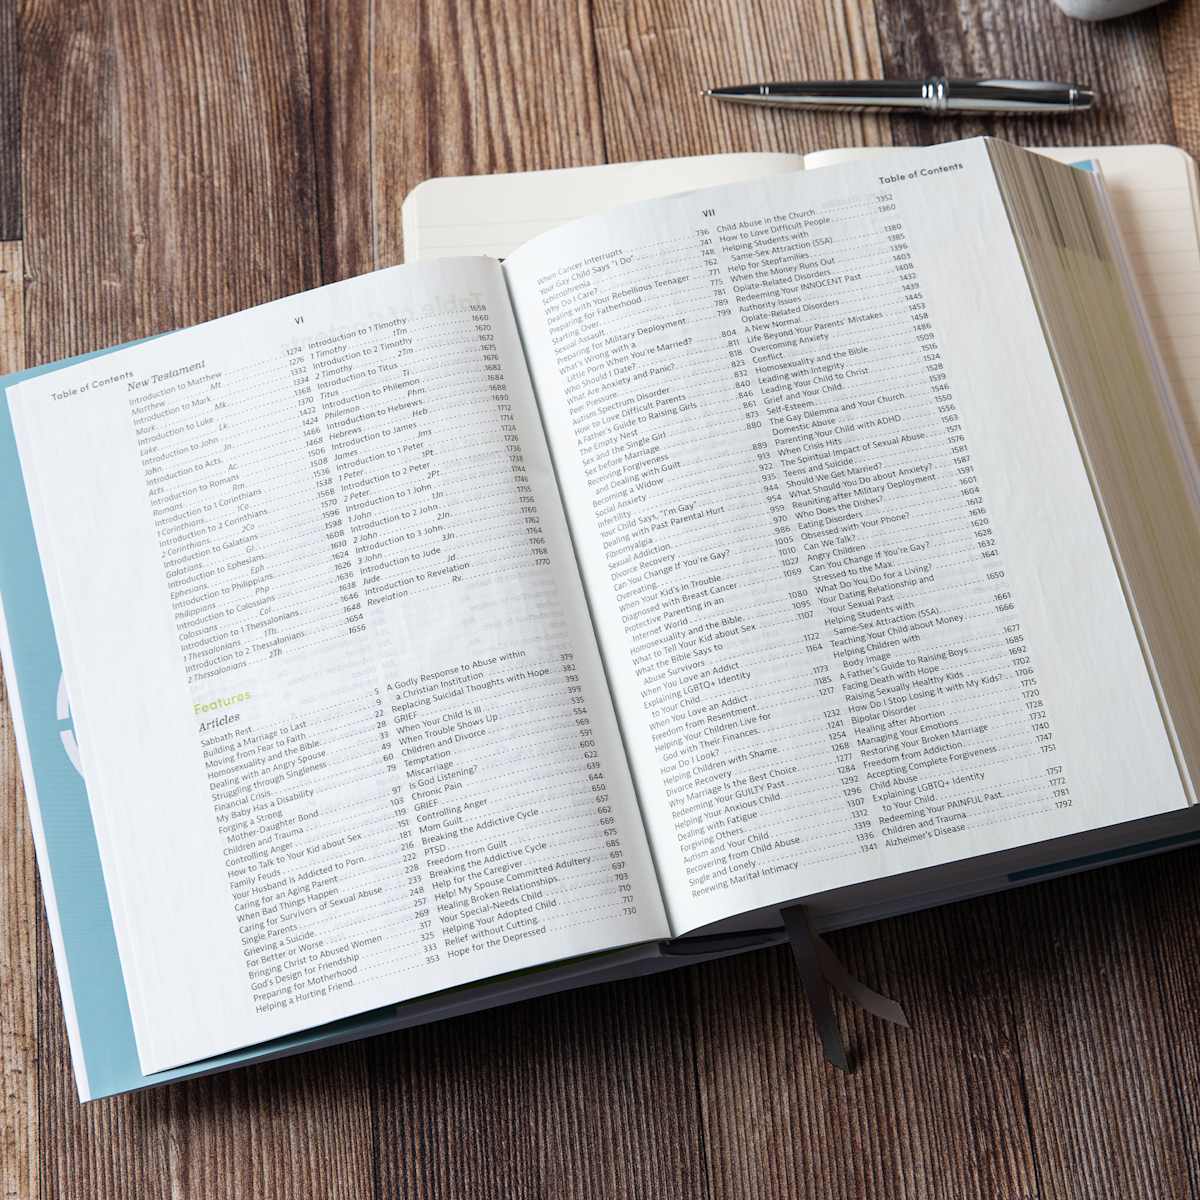 Table of Contents
VI
New Testament
Introduction to Matthew 1274
Matthew Mt 1276
Introduction to Mark 1332
Mark Mk 1334
Introduction to Luke 1368
Luke Lk 1370
Introduction to John 1422
John Jn 1424
Introduction to Acts 1466
Acts Ac 1468
Introduction to Romans 1506
Romans Rm 1508
Introduction to 1 Corinthians 1536
1 Corinthians 1Co 1538
Introduction to 2 Corinthians 1568
2 Corinthians 2Co 1570
Introduction to Galatians 1596
Galatians Gl 1598
Introduction to Ephesians 1608
Ephesians Eph 1610
Introduction to Philippians 1624
Philippians Php 1626
Introduction to Colossians
Colossians Col 1636
Introduction to 1 Thessalonians 1646
1 Thessalonians 1Th 1648
Introduction to 2 Thessalonians
2 Thessalonians 2Th 1656
Introduction to 1 Timothy 1658
1 Timothy 1Tm 1660
Introduction to 2 Timothy 1670
2 Timothy 2Tm 1672
Introduction to Titus 1675
Titus Ti 1676
Introduction to Philemon 1682
Philemon Phm 1684
Introduction to Hebrews 1688
Hebrews Heb 1690
Introduction to James 1712
James Jms 1714
Introduction to 1 Peter 1724
1 Peter 1Pt 1726
Introduction to 2 Peter 1736
2 Peter 2Pt 1738
Introduction to 1 John 1744
1 John 1Jn 1746
Introduction to 2 John 1755
2 John 2Jn 1756
Introduction to 3 John 1760
3 John 3Jn 1762
Introduction to Jude 1764
Jude Jd 1766
Introduction to Revelation 1768
Revelation Rv 1770
Features
Articles
Sabbath Rest 5
Building a Marriage to Last 9
Moving from Fear to Faith 22
Homosexuality and the Bible 28
Dealing with an Angry Spouse 33
Struggling through Singleness 49
Financial Crisis 60
My Baby Has a Disability 79
Forging a Strong
Mother-Daughter Bond 97
Children and Trauma 103
Controlling Anger 119
How to Talk to Your Kid about Sex 151
Family Feuds 181
Your Husband is Addicted to Porn 216
Caring for an Aging Parent 222
When Bad Things Happen 228
Caring for Survivors of Sexual Abuse 233
Single Parents 248
Grieving a Suicide 257
For Better or Worse 269
Bringing Christ to Abused Women 317
God's Design for Friendship 325
Preparing for Motherhood 333
Helping a Hurting Friend 353
A Godly Response to Abuse within
a Christian Institution 379
Replacing Suicidal Thoughts with Hope 382
GRIEF 393
When Your Child Is Ill 399
When Trouble Shows Up 535
Children and Divorce 554
Temptation 569
Miscarriage 591
Is God Listening? 600
Chronic Pain 622
GRIEF 639
Controlling Anger 644
Mom Guilt 650
Breaking the Addictive Cycle 657
PTSD 662
Freedom from Guilt 669
Breaking the Addictive Cycle 675
Help for the Caregiver 685
Help! My Spouse Committed Adultery 691
Healing Broken Relationships 697
Your Special-Needs Child 703
Helping Your Adopted Child 710
Relief without Cutting 717
Hope for the Depressed 730
VII
Table of Contents
When Cancer Interrupts 736
Your Gay Child Says "I Do" 741
Schizophrenia 748
Why Do I Care? 762
Dealing with Your Rebellious Teenager 771
Preparing for Fatherhood 775
Starting Over 781
Sexual Assault 789
Preparing for Military Deployment 799
What's Wrong with a
Little Porn When You're Married? 804
Who Should I Date? 811
What Are Anxiety and Panic? 818
Peer Pressure 823
Autism Spectrum Disorder 832
How to Love Difficult Parents 840
A Father's Guide to Raising Girls 846
The Empty Nest 861
Sex and the Single Girl 873
Sex before Marriage 880
Receiving Forgiveness
and Dealing with Guilt 889
Becoming a Widow 913
Social Anxiety 922
Infertility 935
Your Child Says, "I'm Gay" 944
Dealing with Past Parental Hurt 954
Fibromyalgia 959
Sexual Addiction 970
Divorce Recovery 986
Can You Change If You're Gay? 1005
Overeating 1010
When Your Kid's in Trouble 1027
Diagnosed with Breast Cancer 1069
Protective Parenting in an
Internet World 1080
Homosexuality and the Bible 1095
What to Tell Your Kid about Sex 1107
What the Bible Says to
Abuse Survivors 1122
When You Love an Addict 1164
Explaining LGBTQ+ Identity
to Your Child 1173
When You Love an Addict 1185
Freedom from Resentment 1217
Helping Your Children Live for
God with Their Finances 1232
How Do I Look? 1241
Helping Children with Shame 1254
Divorce Recovery 1268
Why Marriage Is the Best Choice 1277
Redeeming Your GUILTY Past 1284
Helping Your Anxious Child 1292
Dealing with Fatigue 1296
Forgiving Others 1307
Autism and Your Child 1312
Recovering from Child Abuse 1319
Single and Lonely 1336
Renewing Marital Intimacy 1341
Child Abuse in the Church 1352
How to Love Difficult People 1360
Helping Students with
Same-Sex Attraction (SSA) 1380
Help for Stepfamilies 1385
When the Money Runs Out 1396
Opiate-Related Disorders 1403
Redeeming Your INNOCENT Past 1408
Authority Issues 1432
Opiate-Related Disorders 1439
A New Normal 1445
Life Beyond Your Parents' Mistakes 1453
Overcoming Anxiety 1458
Conflict 1486
Homosexuality and the Bible 1509
Leading with Integrity 1516
Leading Your Child to Christ 1524
Grief and Your Child 1528
Self-Esteem 1539
The Gay Dilemma and Your Church 1546
Domestic Abuse 1550
Parenting Your Child with ADHD 1556
When Crisis Hits 1563
The Spiritual Impact of Sexual Abuse 1571
Teens and Suicide 1576
Should We Get Married?
What Should You Do about Anxiety? 1587
Reuniting after Military Deployment 1591
Who Does the Dishes? 1601
Eating Disorders 1604
Obsessed with Your Phone? 1612
Can We Talk? 1616
Angry Children 1620
Can You Change If You're Gay? 1628
Stressed to the Max 1632
What Do You Do for a Living? 1641
Your Dating Relationship and
Your Sexual Past 1650
Helping Students with
Same-Sex Attraction (SSA) 1661
Teaching Your Child about Money 1666
Helping Children with
Body Image 1677
A Father's Guide to Raising Boys 1685
Facing Death with Hope 1692
Raising Sexually Healthy Kids 1702
How Do I Stop Losing It with My Kids? 1706
Bipolar Disorder 1715
Healing after Abortion 1720
Managing Your Emotions 1728
Restoring Your Broken Marriage 1732
Freedom from Addiction 1740
Accepting Complete Forgiveness 1747
Child Abuse 1751
Explaining LGBTQ+ Identity
to Your Child 1757
Redeeming Your PAINFUL Past 1772
Children and Trauma 1781
Alzheimer's Disease 1792